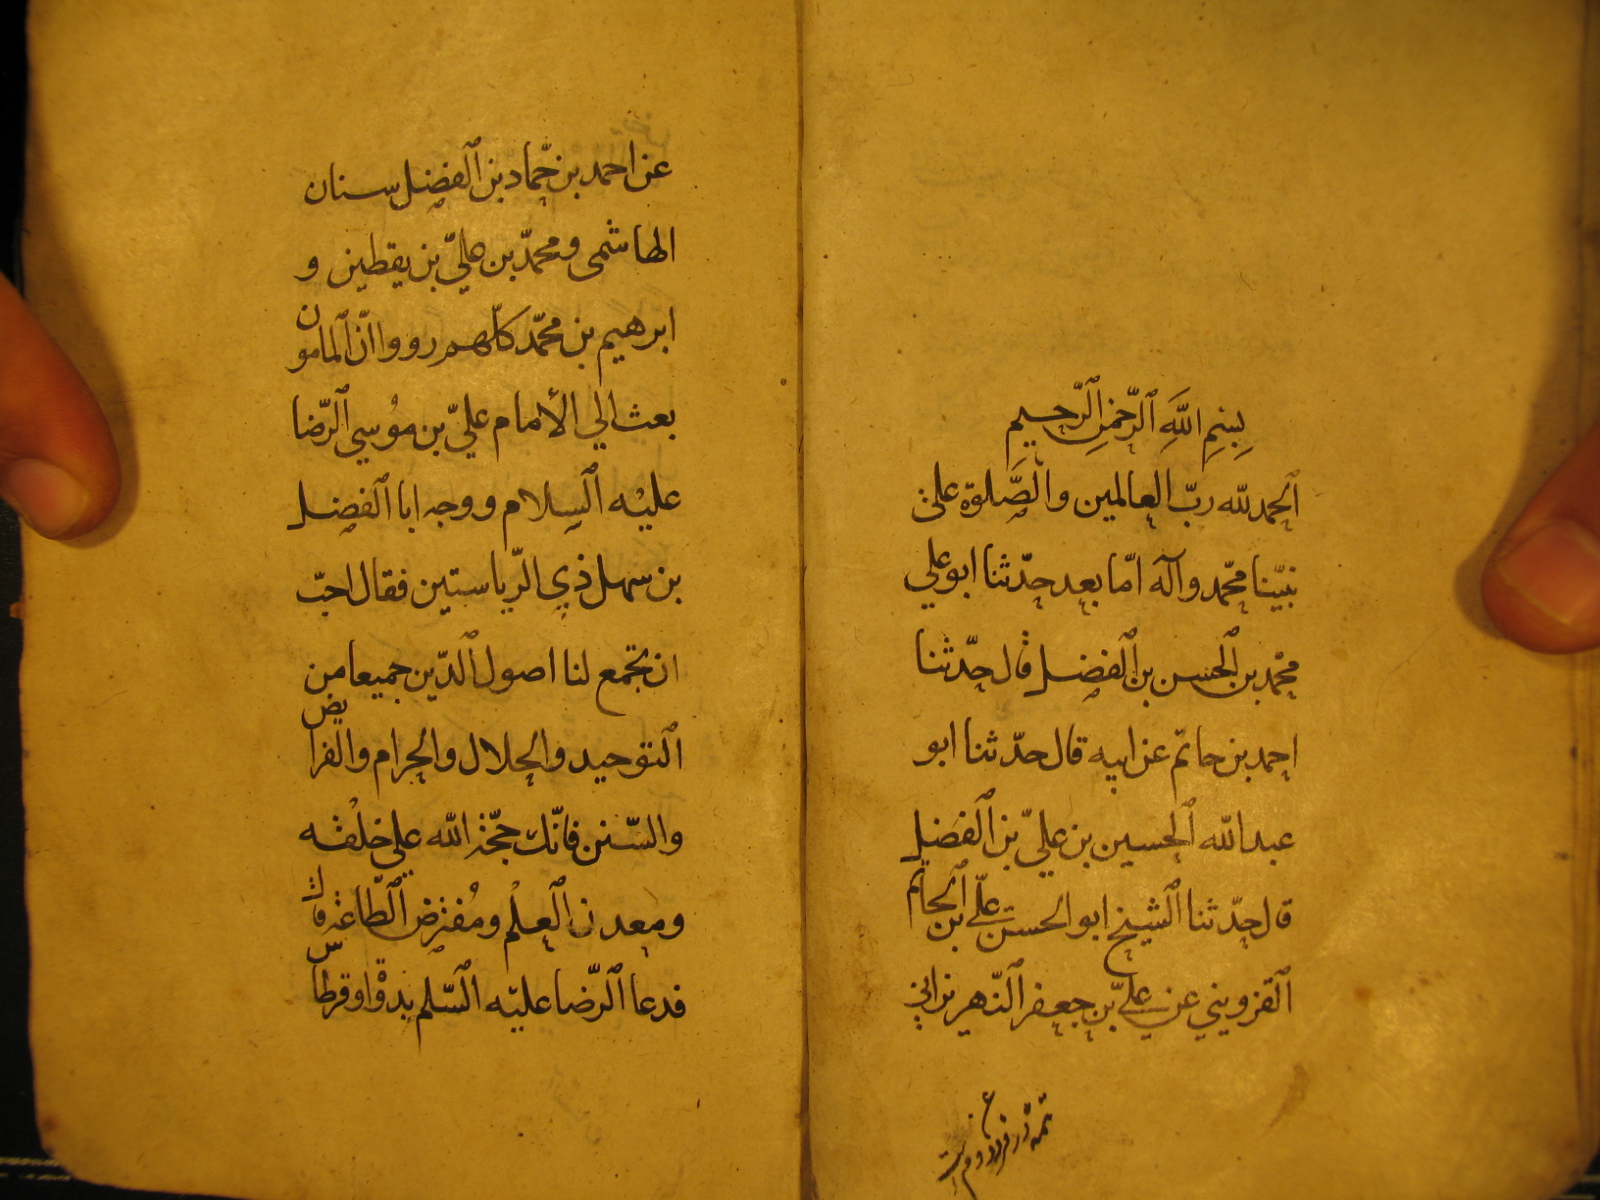 بِسْمِ اللّهِ الرّحْمنِ الرّحيمِ
الحمد لله ربّ العالمين والصّلوة على
نبيّنا محمّد وآله امّا بعد حدّثنا ابو علي
محمّد بن الحسن بن الفضل قال حدّثنا
احمد بن حاتم عن ابيه قال حدّثنا ابو
عبد الله الحسين بن عليّ بن الفضل
قال حدّثنا الشيخ ابو الحسن عليّ بن الحاتم
القزويني عن عليّ بن جعفر
عن احمد بن حمّاد بن الفضل سنان
الهاشمى ومحمّد بن عليّ بن يقطين و
ابرهيم بن محمّد كلّهم رووا انّ المامون
بعث الي الأمام عليّ بن مُوسي الرّضا
عليْه السلام ووجه ابا الفضل
بن سهل ذي الرّياستين فقال احبّ
ان تجمع لنا اصول الدّين جميعا من
التوحيد والحلال والحرام والفرايض
والسّنن فانّك حجّة الله علي خلْقه
ومعدن العلْم ومُفترض الطّاعة قال
فدعا الرّضا عليْه السّلم بدواة وقرطاس